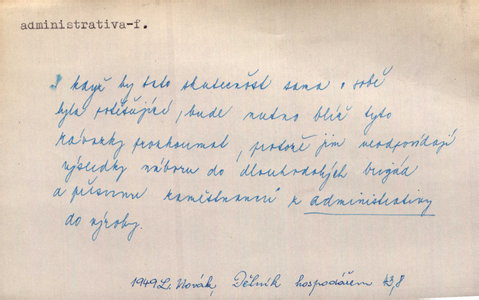 administrativa-f.
I když by tato skutečnost sama o sobě
byla potěšující, bude nutno blíž tyto
závazky prozkoumat, protože jim neodpovídají
výsledky náboru do dlouhodobých brigád
a přesunu zaměstnanců z administrativy
do výroby.
1949 L. Novák, Dělník hospodářem 43,8